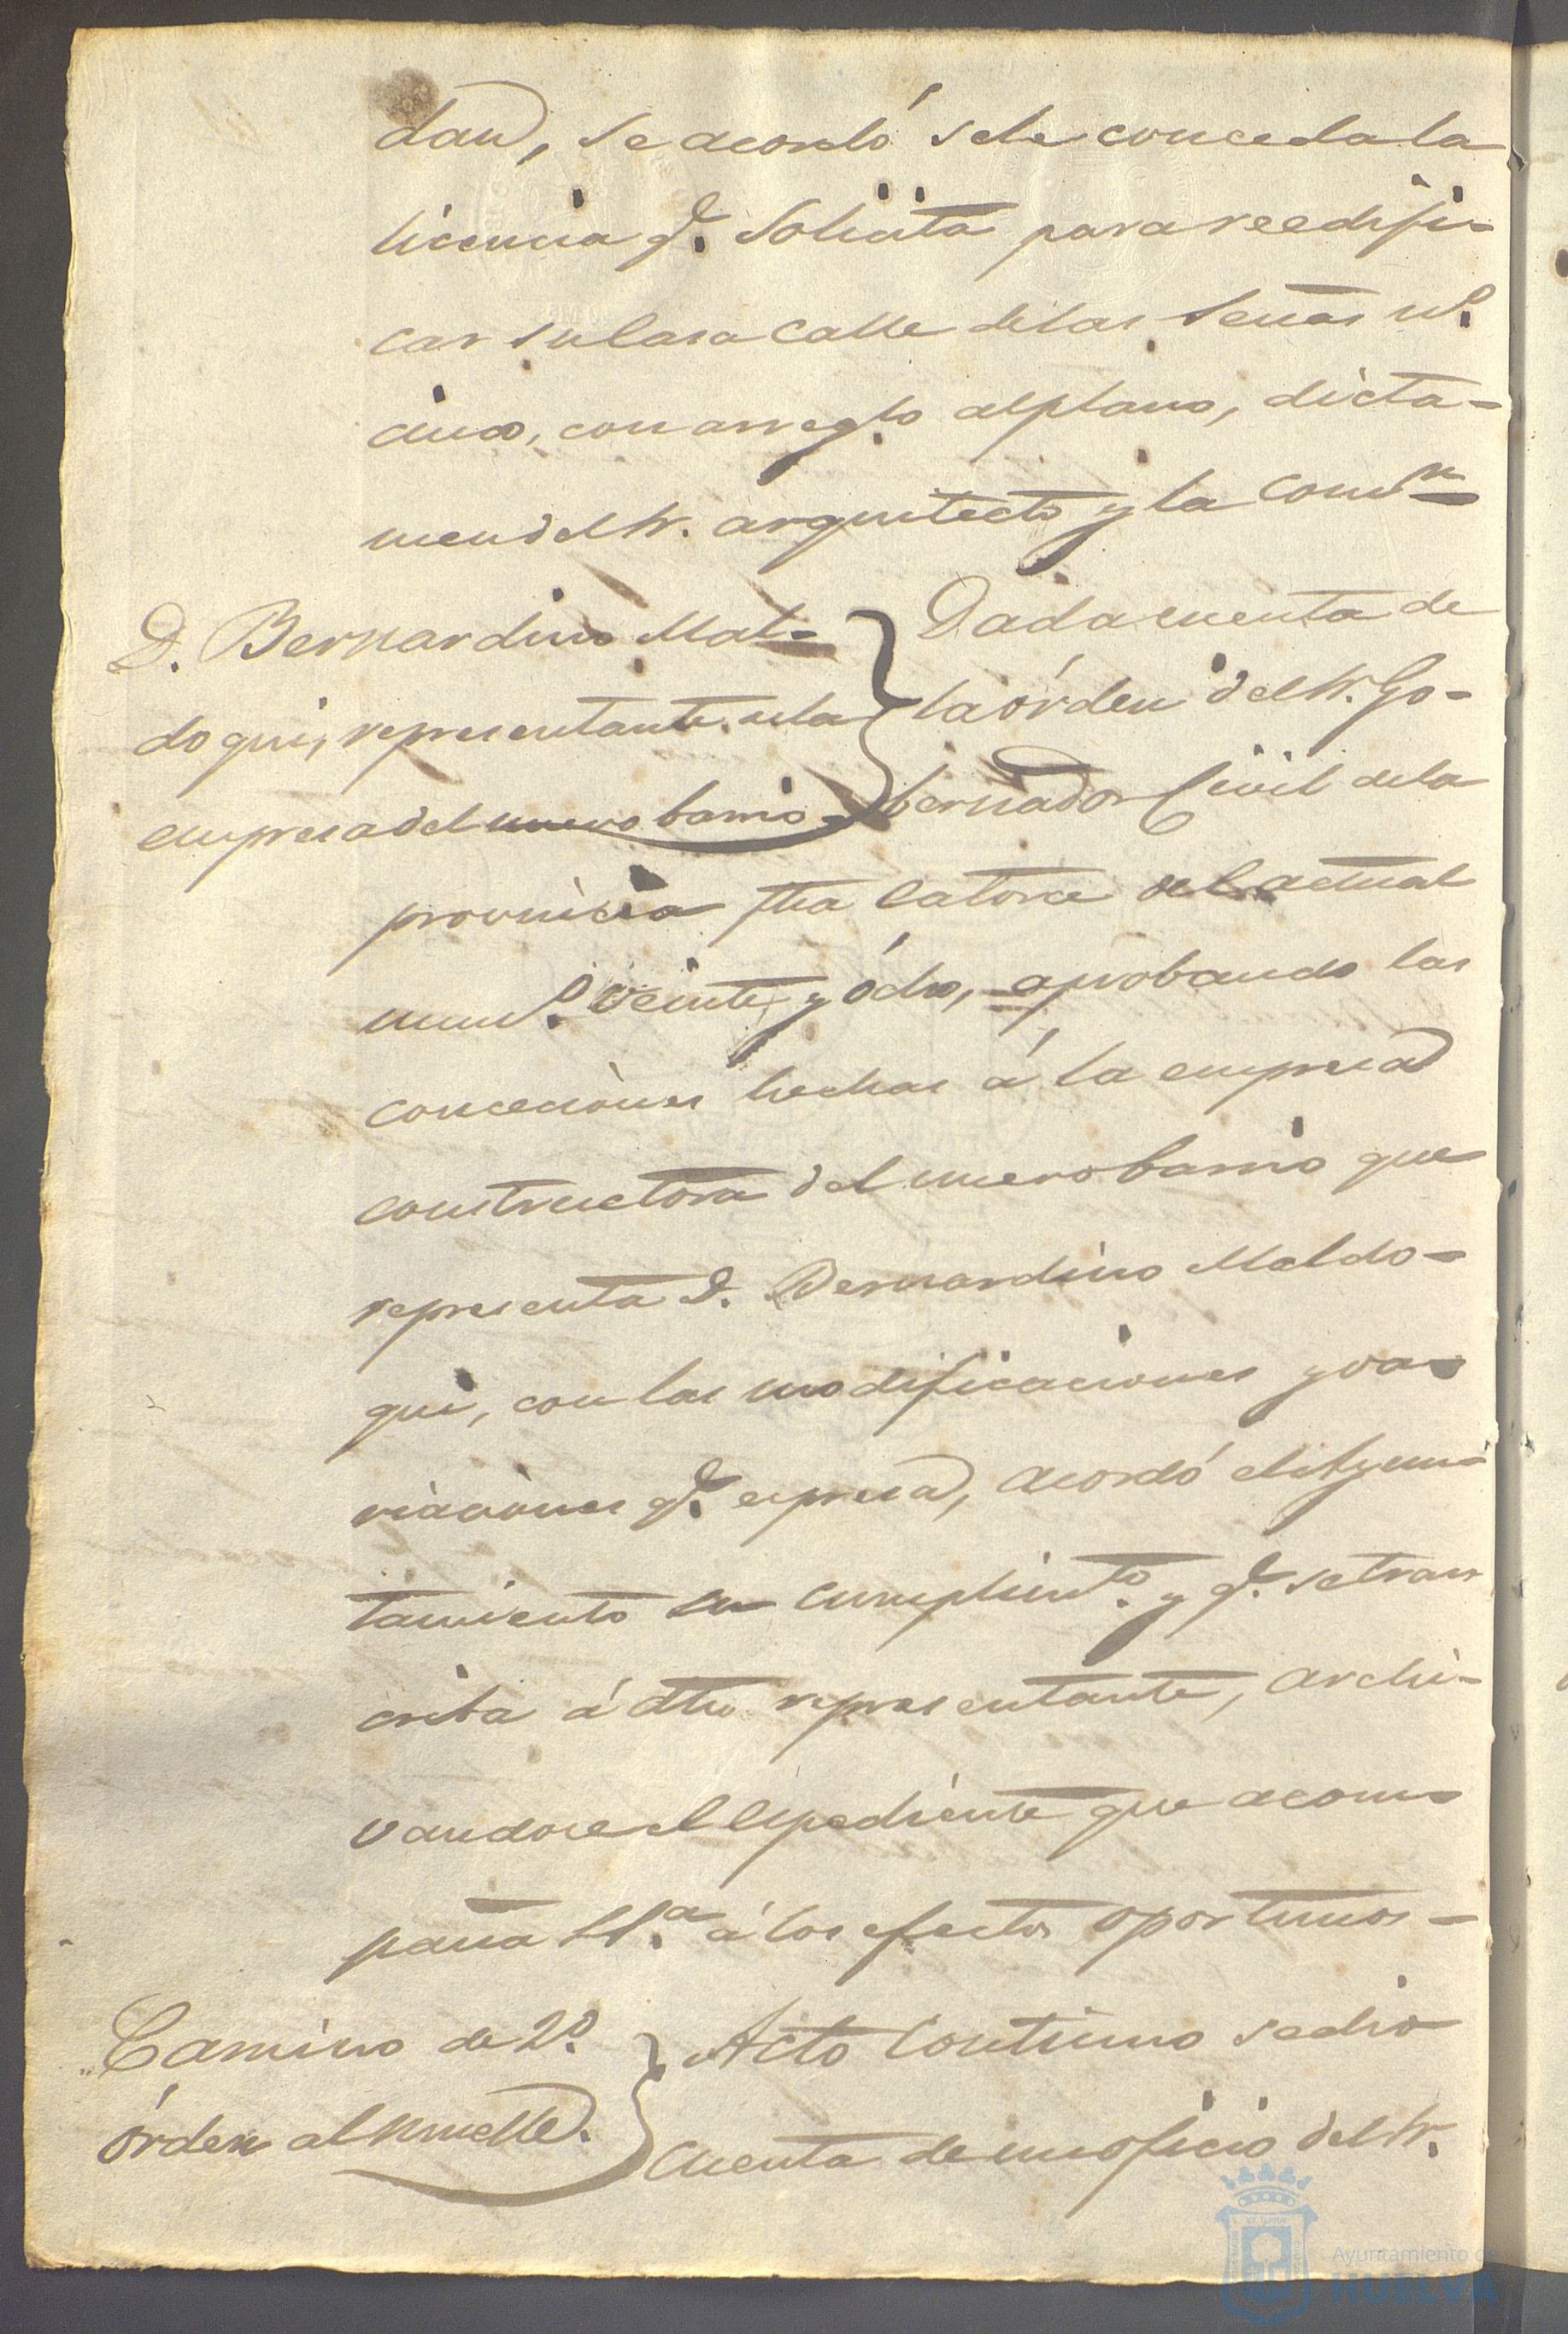 dan, se acordó se le conceda la
licencia q.e solicita para reedifi-
car su casa calle de las Señas n.o
cinco, con arreglo al plano, dicta-
men del Sr. arquitecto y la Comi.n
D. Bernardino Mal-
doqui, representante de la
empresa del nuevo barrio
Dada cuenta de
la órden del Sr. Go-
bernador Civil de la
provincia fha catorce del actual
num.o veinte y ócho, aprobando las
conceciones hechas á la empresa
constructora del nuevo barrio que
representa D. Bernardino Maldo-
qui, con las modificaciones y va-
riaciones q.e espresa, acordó el Ayun-
tamiento su cumplim.to y q.e se tras
criba á dho representante, archi-
vandose el espediente que acom-
paña S.S.a á los efectos oportunos-
Camino de 2.o
órden al muelle.
Acto continuo se dio
cuenta de un oficio del Sr.
Ayuntamiento de
HUELVA